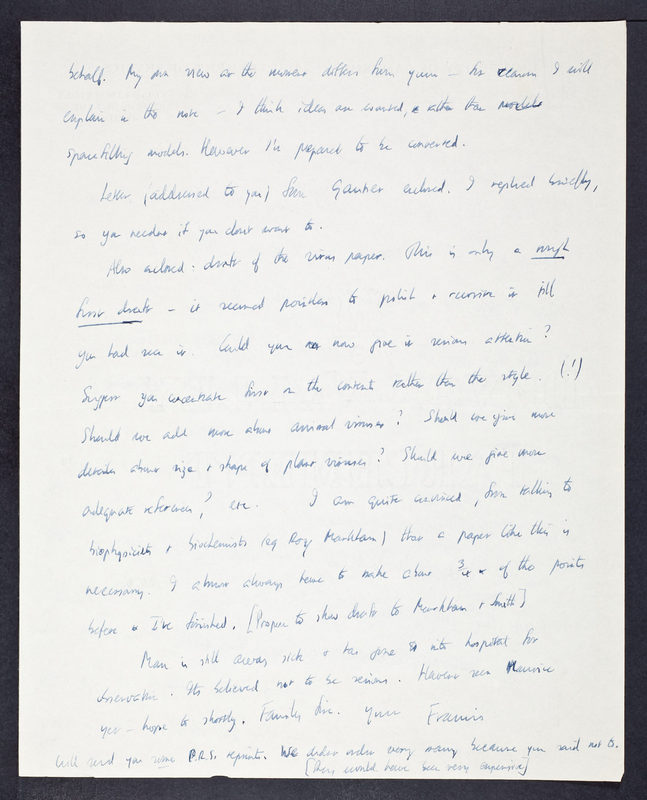 behalf. My own view at the moment differs from yours – for reasons I will
explain in the note – I think ideas are wanted, rather than models
spacefilling models. However I'm prepared to be converted.
Letter (addressed to you) from enclosed. I replied briefly,
so you needn't if you don't want to.
Also enclosed. draft of the virus paper. This is only a rough
first draft – it seemed pointless to polish & reconsider it till
you had seen it. Could you now give it serious attention?
Suggest you concentrate first on the contents rather than the style. (!)
Should we add more about animal viruses? Should we give more
details about size & shape of plant viruses? Should we give more
adequate references? etc. I am quite convinced, from talking to
biophysicists & biochemists (eg Roy Markham) that a paper like this is
necessary. I almost always have to make about 3/4 of the points
before I've finished. [Propose to show draft to Markham & Smith]
Max is still away sick & has gone into hospital for
observation. It's believed not to be serious. Haven't seen Maurice
yet – hope to shortly. Family fine. Yours Francis
Will send you some P.R.S. reprints. We didn't order very many because you said not to.
[They would have been very expensive]